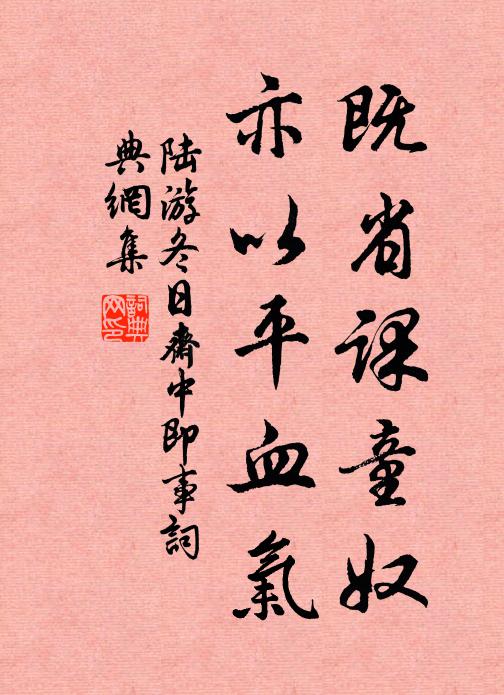 既省课童奴
亦以平血氣
陆游冬日斋中即事詞
典網集
詞典網印